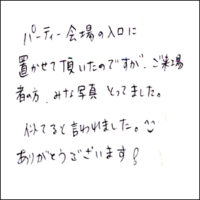 パーティー会場の入口に
置かせて頂いたのですが、ご来場
者の方、みな写真 とってました。
似てると言われました。^^
ありがとうございます!